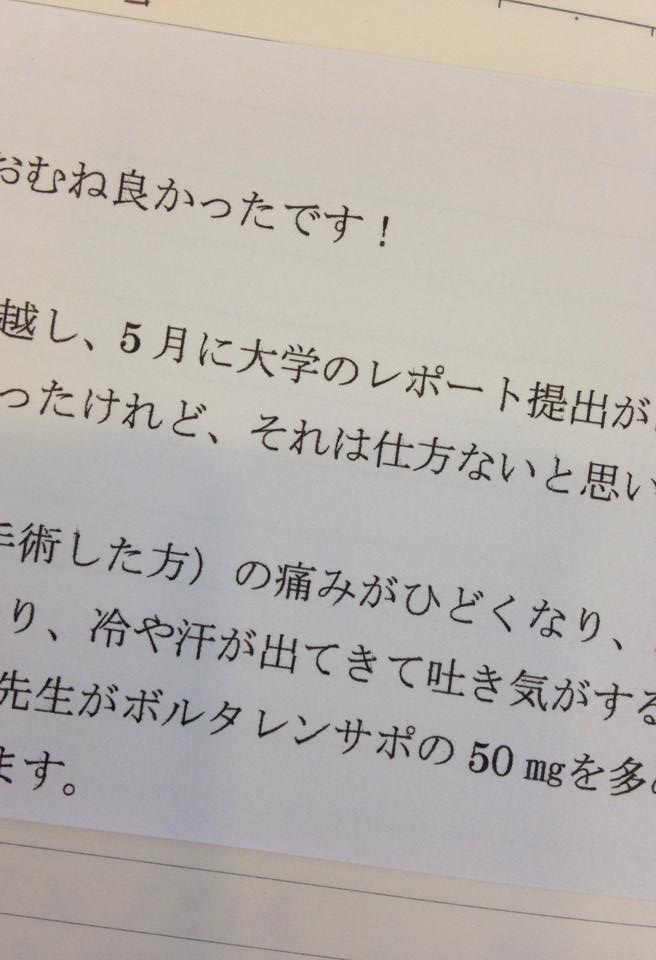 おむね良かったです！
越し、5月に大学のレポート提出が
ったけれど、それは仕方ないと思い
手術した方）の痛みがひどくなり、
り、冷や汗が出てきて吐き気がする
先生がボルタレンサポの50㎎を多め
ます。